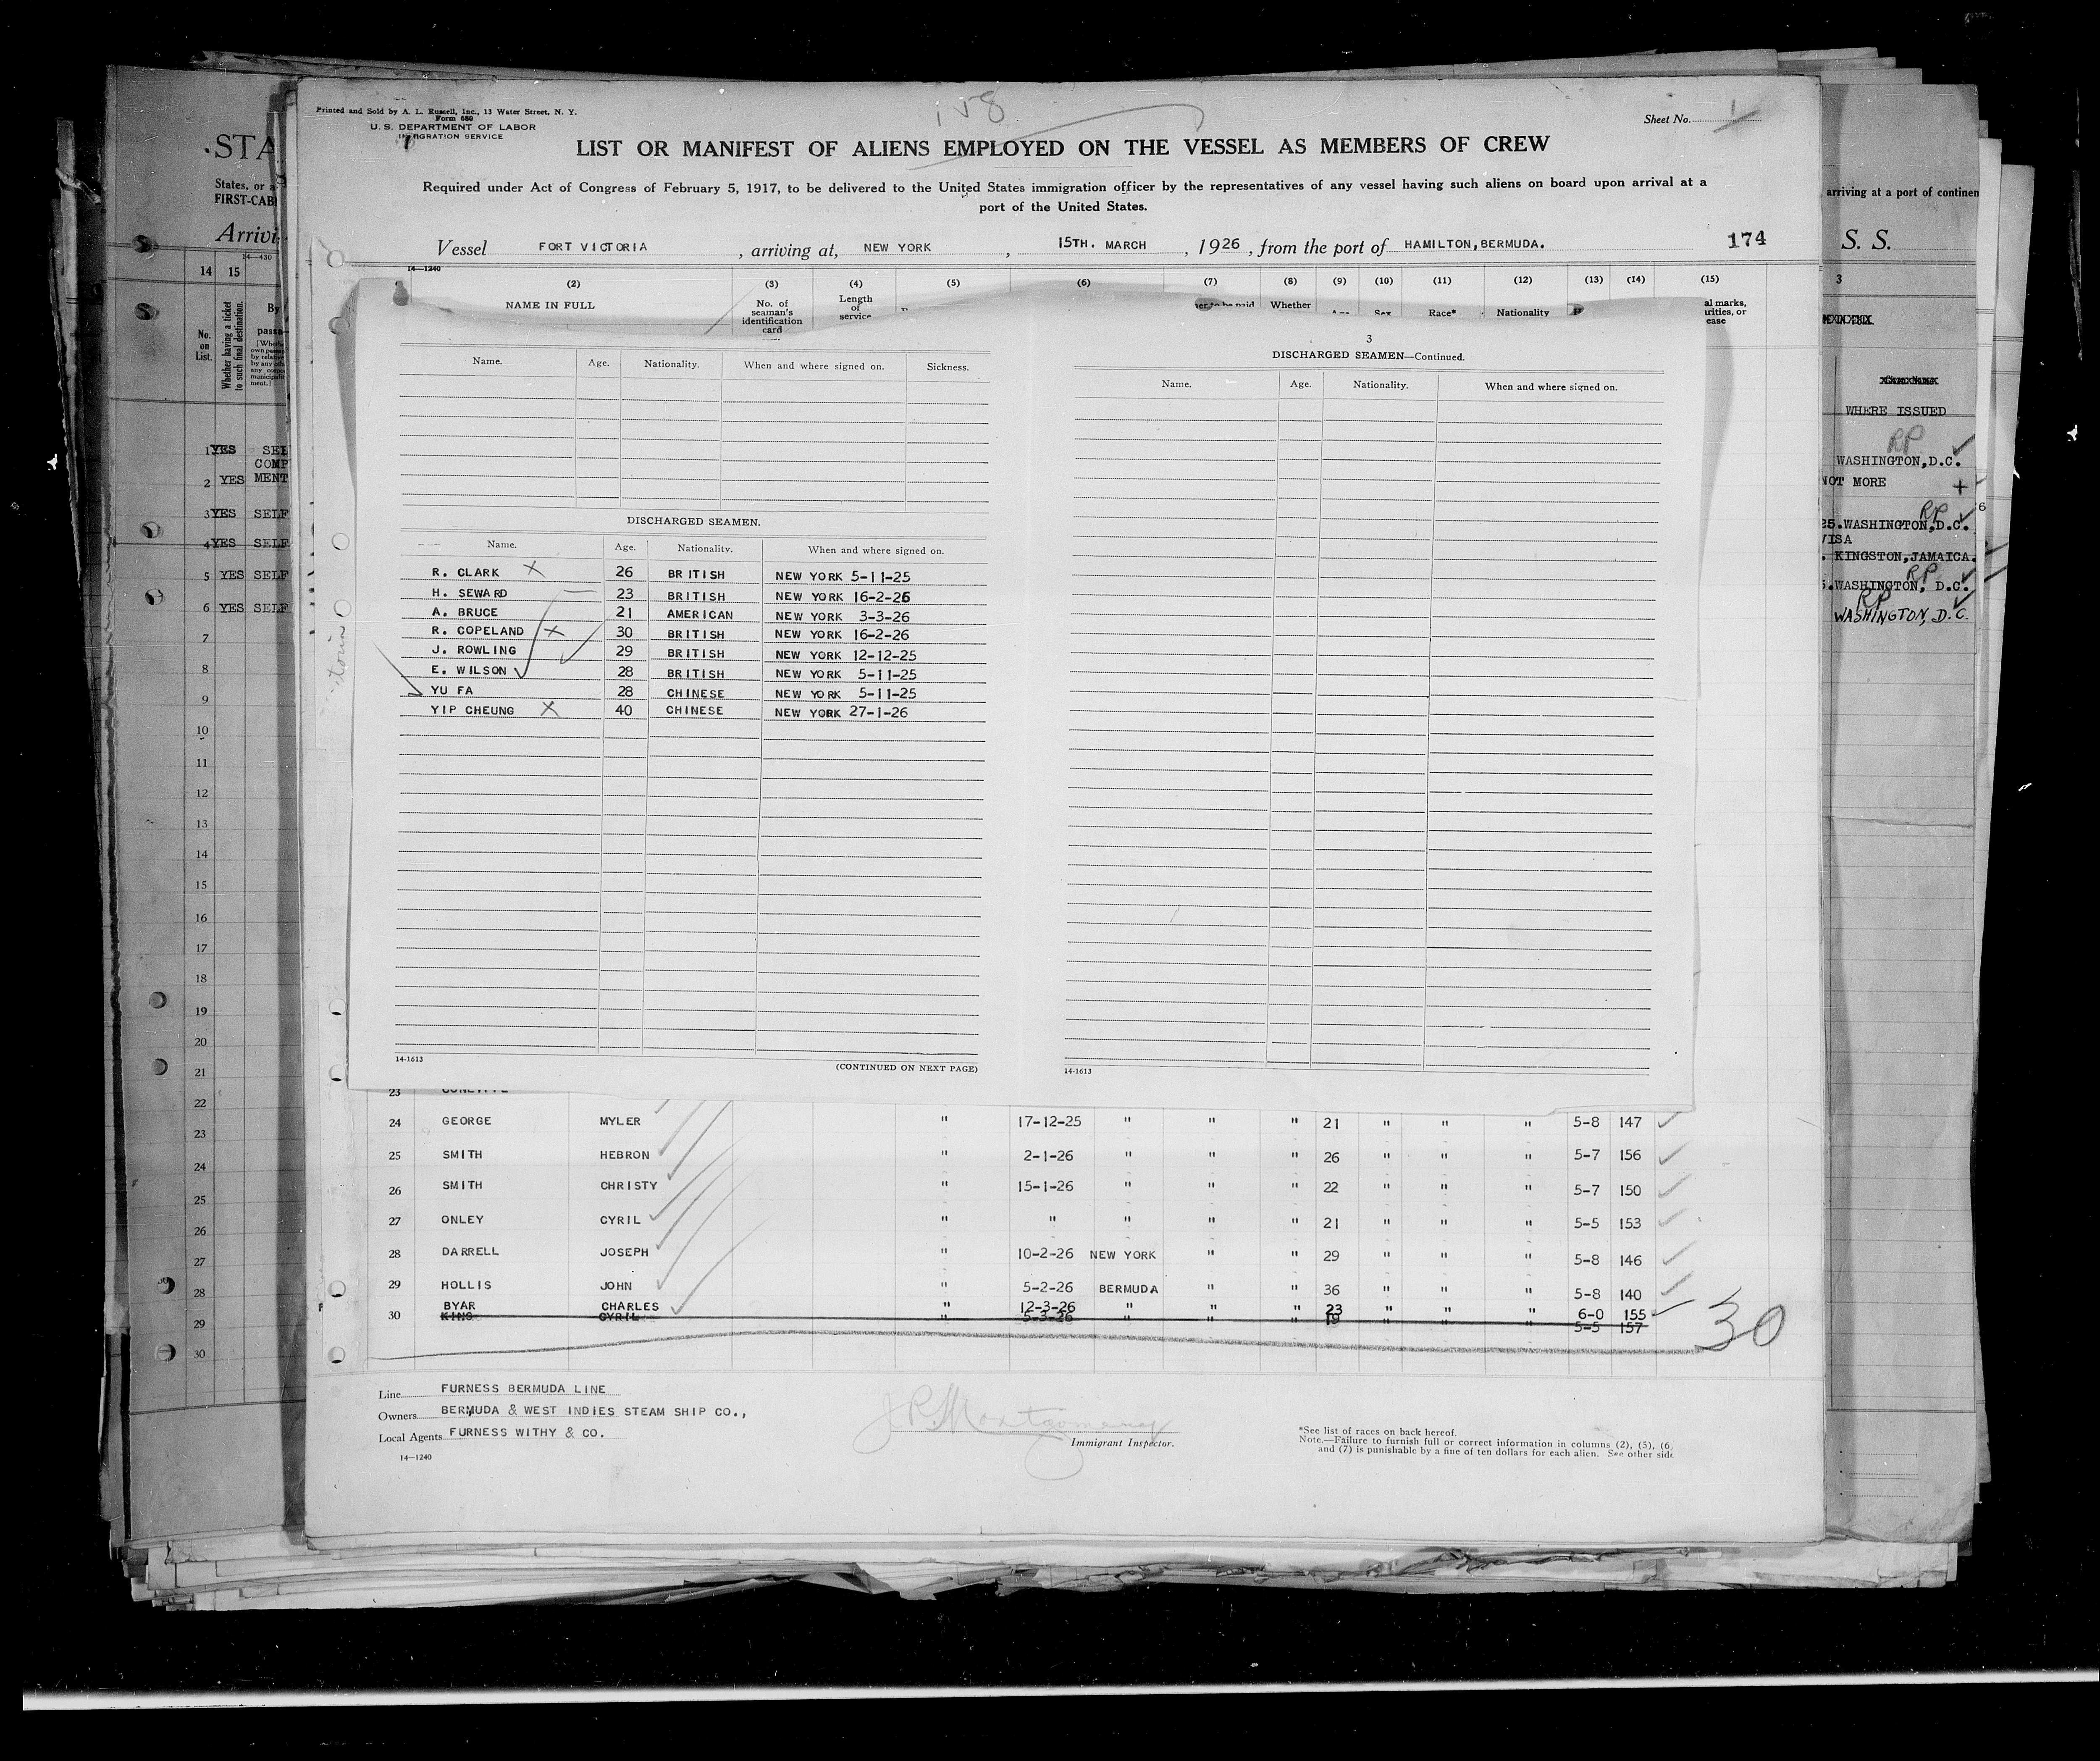 158
Printed and Sold by A. L. Russell, Inc., 13 Water Street, N. Y.
Form 680
U. S. DEPARTMENT OF LABOR
IMMIGRATION SERVICE
Sheet No. 1
LIST OR MANIFEST OF ALIENS EMPLOYED ON THE VESSEL AS MEMBERS OF CREW
Required under Act of Congress of February 5, 1917, to be delivered to the United States immigration officer by the representatives of any vessel having such aliens on board upon arrival at a
port of the United States.
Vessel FORT VICTORIA, arriving at, NEW YORK, 15TH. MARCH, 1926, from the port of HAMILTON,BERMUDA. 174
14—1240
(2) (3) (4) (5) (6) (7) (8) (9) (10) (11) (12) (13) (14) (15)
NAME IN FULL
No. of seaman's identification card
Length of service
Whether
Sex
Race*
Nationality
Name. Age. Nationality. When and where signed on. Sickness.
DISCHARGED SEAMEN.
Name. Age. Nationality. When and where signed on.
R. CLARK X 26 BRITISH NEW YORK 5-11-25
H. SEWARD 23 BRITISH NEW YORK 16-2-26
A. BRUCE 21 AMERICAN NEW YORK 3-3-26
R. COPELAND X 30 BRITISH NEW YORK 16-2-26
J. ROWLING 29 BRITISH NEW YORK 12-12-25
E. WILSON 28 BRITISH NEW YORK 5-11-25
YU FA 28 CHINESE NEW YORK 5-11-25
YIP CHEUNG X 40 CHINESE NEW YORK 27-1-26
14-1613
(CONTINUED ON NEXT PAGE)
3
DISCHARGED SEAMEN—Continued.
Name. Age. Nationality. When and where signed on.
14-1613
23
24 GEORGE MYLER " 17-12-25 " " " 21 " " " 5-8 147
25 SMITH HEBRON " 2-1-26 " " " 26 " " " 5-7 156
26 SMITH CHRISTY " 15-1-26 " " " 22 " " " 5-7 150
27 ONLEY CYRIL " " " " " 21 " " " 5-5 153
28 DARRELL JOSEPH " 10-2-26 NEW YORK " " 29 " " " 5-8 146
29 HOLLIS JOHN " 5-2-26 BERMUDA " " 36 " " " 5-8 140
BYAR CHARLES " 12-3-26 " " " 23 " " " 6-0 155
30 KING CYRIL " 5-3-26 " " " 19 " " " 5-5 157
30
Line FURNESS BERMUDA LINE
Owners BERMUDA & WEST INDIES STEAM SHIP CO.,
Local Agents FURNESS WITHY & CO.
14—1240
J.P. Montgomery
Immigrant Inspector.
*See list of races on back hereof.
Note.—Failure to furnish full or correct information in columns (2), (5), (6
and (7) is punishable by a fine of ten dollars for each alien. See other side
STA
States, or a
FIRST-CAB
Arrivi
14—430
14 15
No. on List.
Whether having a ticket to such final destination.
By
1 YES SEL
COMP
2 YES MENT
3 YES SELF
4 YES SELF
5 YES SELF
6 YES SELF
7
8
9
10
11
12
13
14
15
16
17
18
19
20
21
22
23
24
25
26
27
28
29
30
arriving at a port of continen
S. S.
3
WHERE ISSUED
RP
WASHINGTON,D.C.
NOT MORE
RP
25.WASHINGTON,D.C.
VISA
KINGSTON,JAMAICA.
RP
WASHINGTON, D.C.
RP
WASHINGTON, D.C.